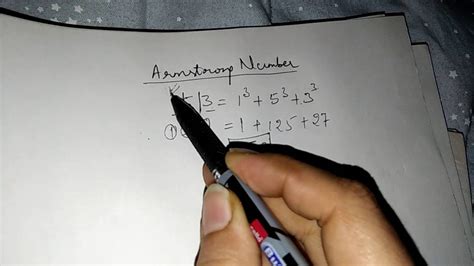 Armstrong Number
3 = 1³ + 5³ + 3³
① = 1 + 125 + 27